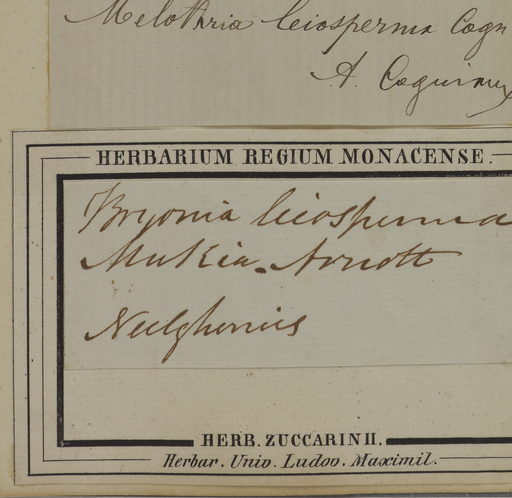 Melothria leiosperma Cogn
A. Cogniaux
HERBARIUM REGIUM MONACENSE.
Bryonia leiosperma
Mukia. Arnott
Neelgherries
HERB. ZUCCARINII.
Herbar. Univ. Ludov. Maximil.